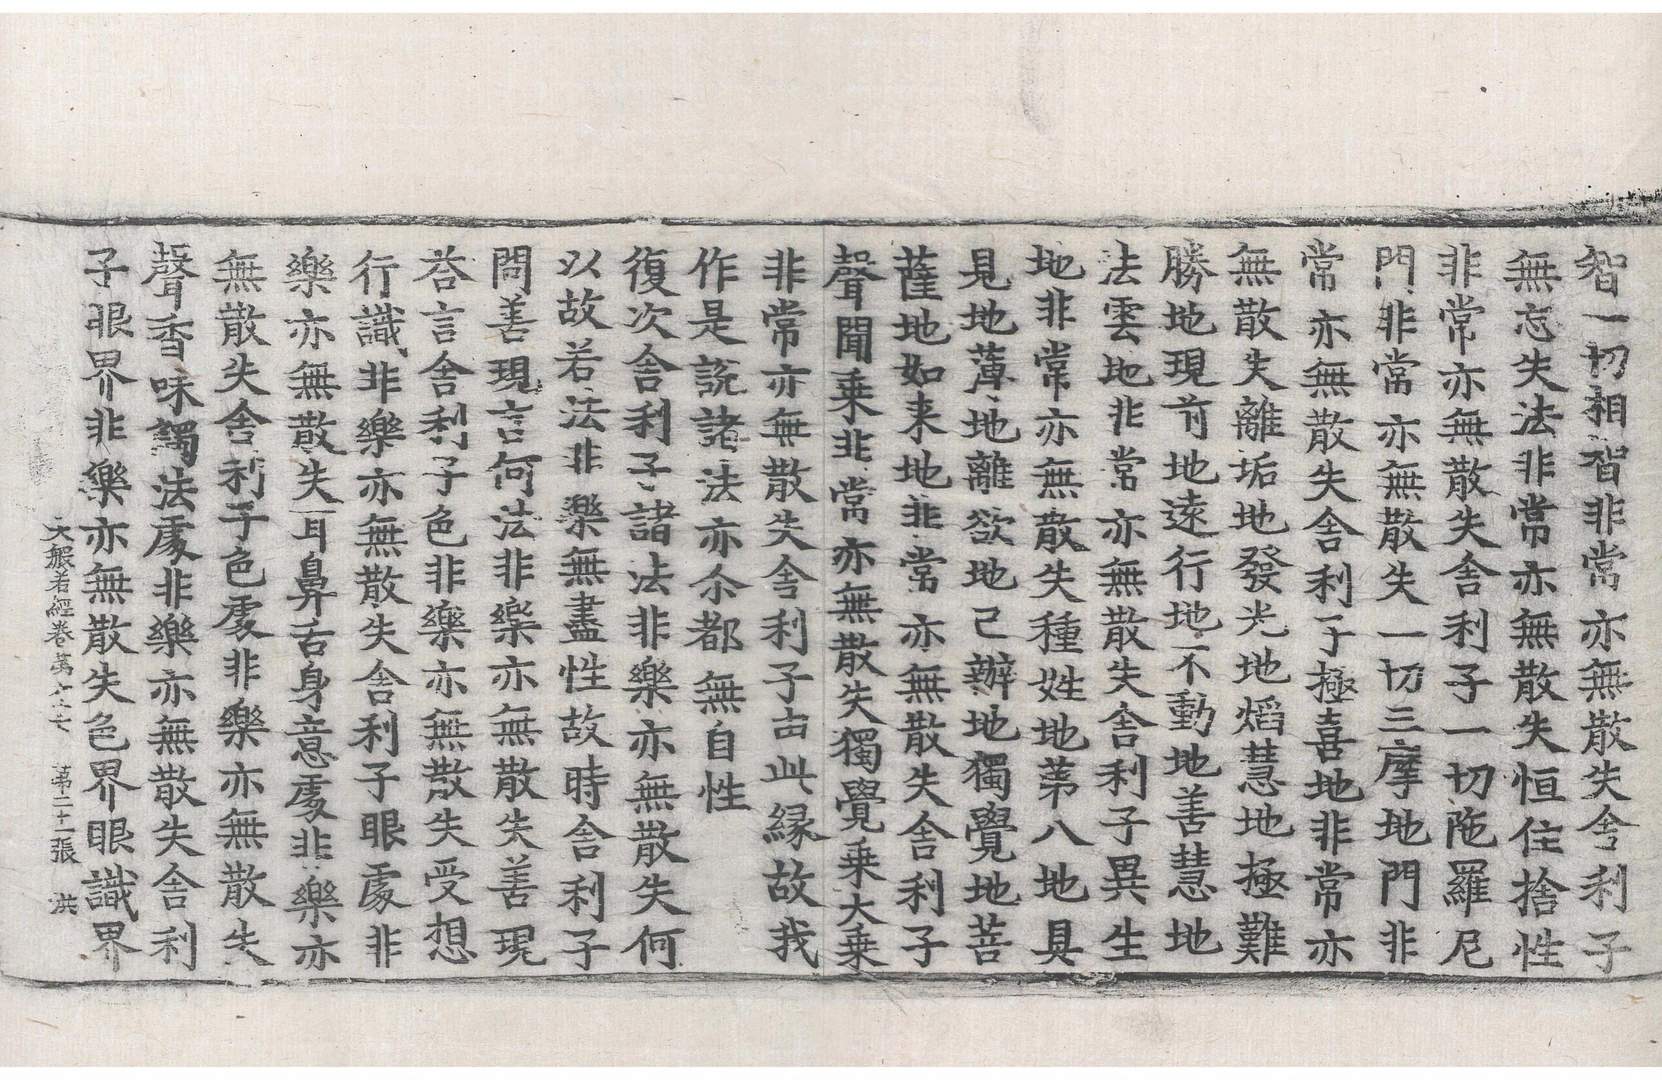 智一切相智非常亦無散失舍利子
無忘失法非常亦無散失恒住捨性
非常亦無散失舍利子一切陁羅尼
門非常亦無散失一切三摩地門非
常亦無散失舍利子極喜地非常亦
無散失離垢地發光地焰慧地極難
勝地現前地遠行地不動地善慧地
法雲地非常亦無散失舍利子異生
地非常亦無散失種姓地第八地具
見地薄地離欲地已辦地獨覺地菩
薩地如来地非常亦無散失舍利子
聲聞乗非常亦無散失獨覺乗大乗
非常亦無散失舍利子由此縁故我
作是說諸法亦尒都無自性
復次舍利子諸法非樂亦無散失何
以故若法非樂無盡性故時舍利子
問善現言何法非樂亦無散失善現
荅言舍利子色非樂亦無散失受想
行識非樂亦無散失舍利子眼處非
樂亦無散失耳鼻舌身意處非樂亦
無散失舍利子色處非樂亦無散失
聲香味觸法處非樂亦無散失舍利
子眼界非樂亦無散失色界眼識界
大般若經卷第六十七 第二十一張 洪